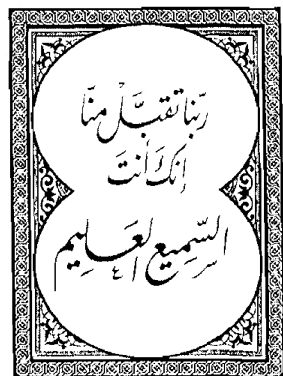 ربّنا تقبّل منّا
إنك أنتَ
السّميع العليم